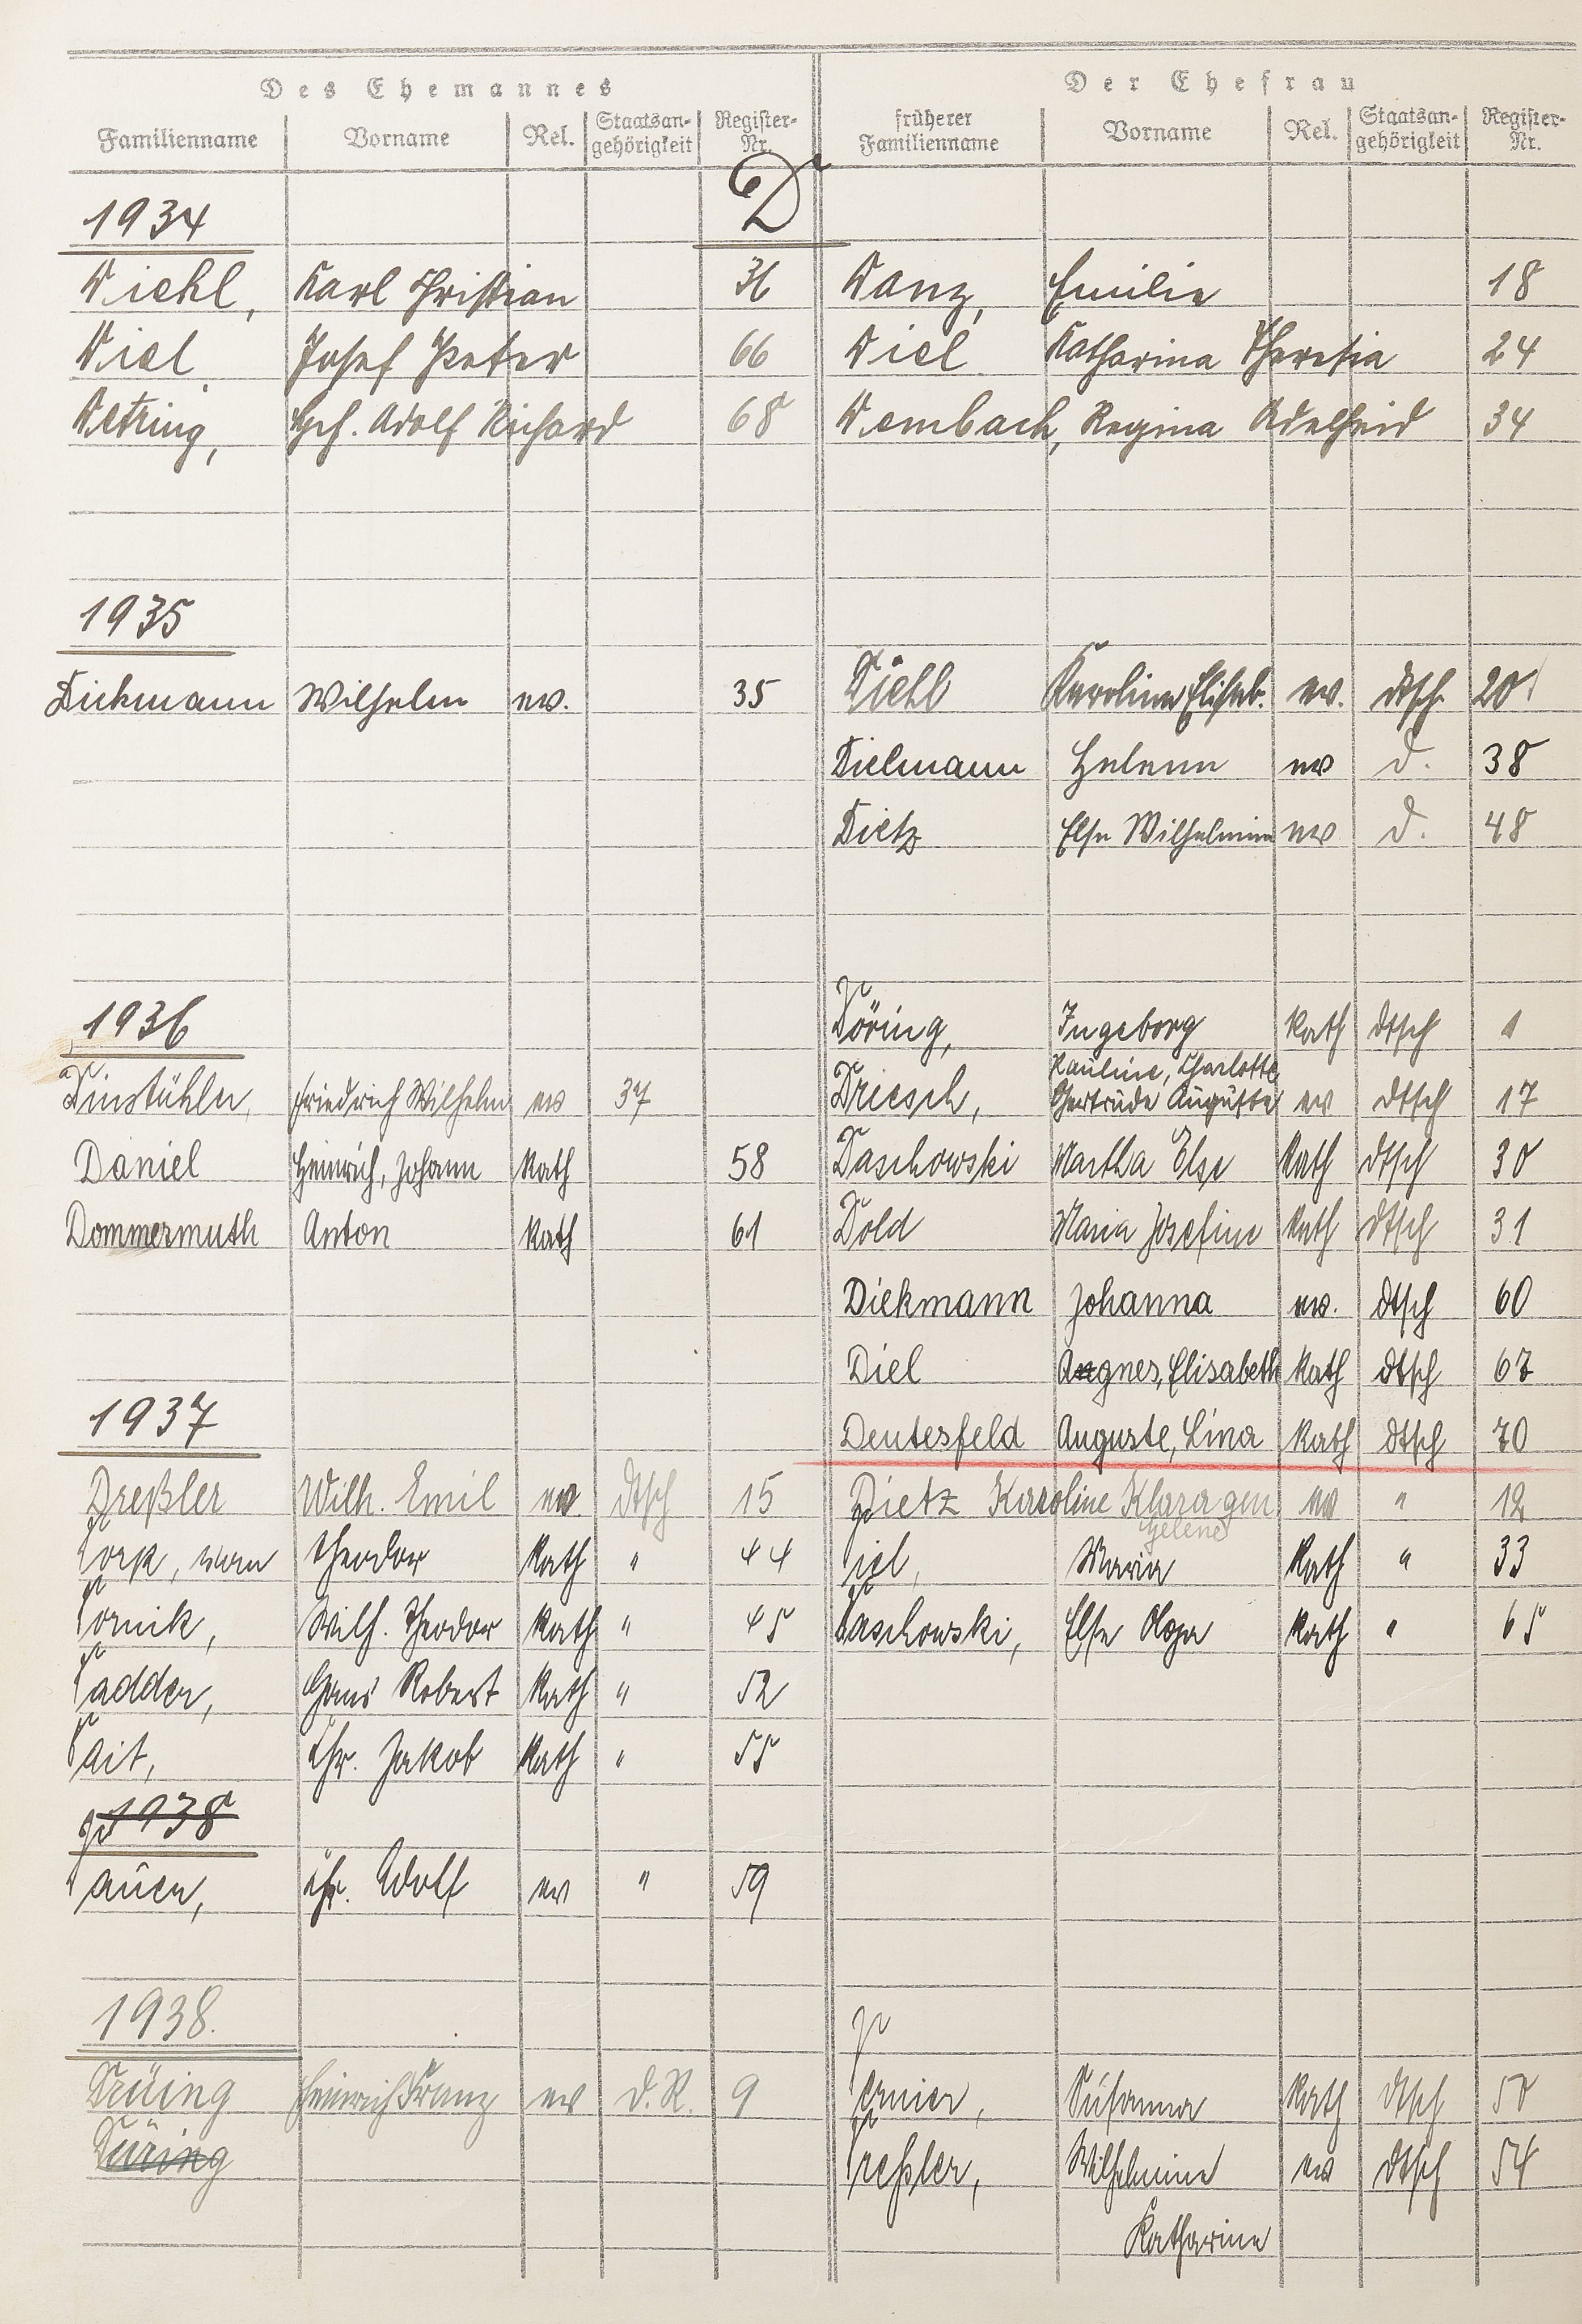 Des Ehemannes Der Ehefrau
Familienname Vorname Rel. Staatsan-gehörigkeit Register-Nr. früherer Familienname Vorname Rel. Staatsan-gehörigkeit Register-Nr.
D
1934
Diehl, Karl Christian 36 Danz, Emilie 18
Diel Josef Peter 66 Diel Katharina Theresia 24
Detring, Adolf Richard 68 Dembach, Regina Adelheid 34
1935
Diekmann Wilhelm ev. 35 Diehl Karoline Elisab. ev. dtsch 20
Dielmann Helene ev d. 38
Dietz Else Wilhelmine ev d. 48
1936 Döring, Ingeborg kath dtsch 1
Pauline, Charlotte
Dinstühler, Friedrich Wilhelm ev 37 Driesch, Gertrude Auguste ev dtsch 17
Daniel Heinrich, Johann kath 58 Daschowski Martha Else kath dtsch 30
Dommermuth Anton kath 61 Dold Maria Josefine kath dtsch 31
Diekmann Johanna ev. dtsch 60
Diel Agnes, Elisabeth kath dtsch 67
1937 Deutesfeld Auguste, Lina kath dtsch 70
Dreßler Wilh. Emil ev. dtsch 15 Dietz Karoline Klara gen. ev " 12
Helene
Dork, van Theodor kath " 44 Diel, Maria kath " 33
Dornik, Wilh. Theodor kath " 45 Daschowski, Else Olga kath " 65
Dadder, Hans Robert kath " 52
Dait, Chr. Jakob kath " 55
1938
Dauer, Chr. Adolf ev " 59
1938.
Drüing Heinrich Franz ev D.R. 9 Dernier, Susanna kath dtsch 50
Düring Dreßler, Wilhelmine ev dtsch 54
Katharine